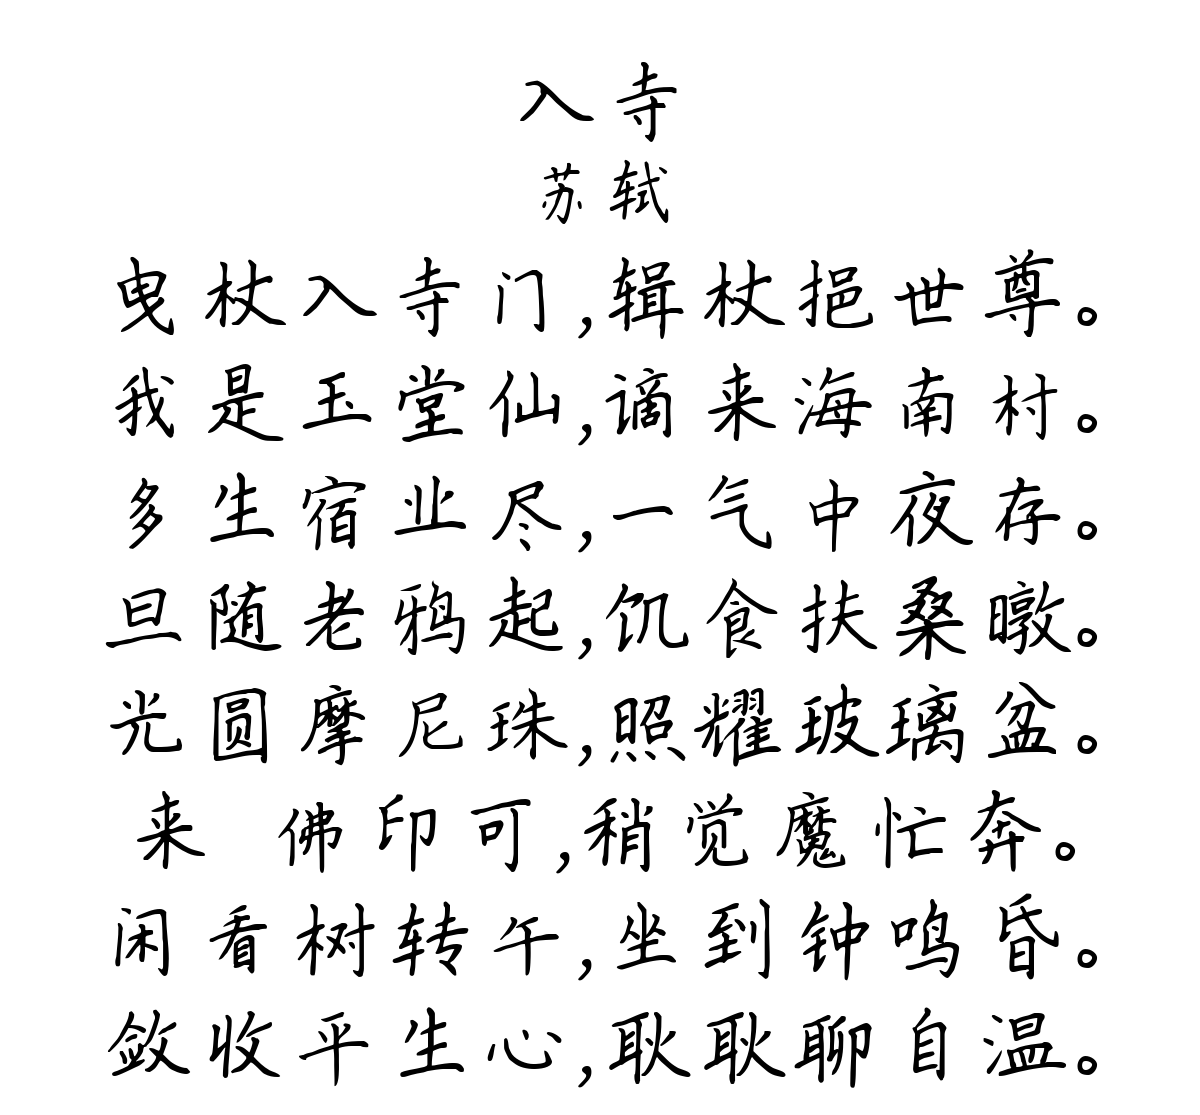 入寺
苏轼
曳杖入寺门,辑杖挹世尊。
我是玉堂仙,谪来海南村。
多生宿业尽,一气中夜存。
旦随老鸦起,饥食扶桑暾。
光圆摩尼珠,照耀玻璃盆。
来 佛印可,稍觉魔忙奔。
闲看树转午,坐到钟鸣昏。
敛收平生心,耿耿聊自温。